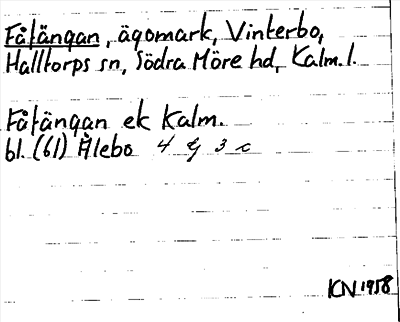 Fåtängan, ägomark, Vinterbo,
Halltorps sn, Södra Möre hd, Kalm. l.
Fåtängan ek Kalm.
bl. (61) Ålebo 4 g 3 c
KN 1958